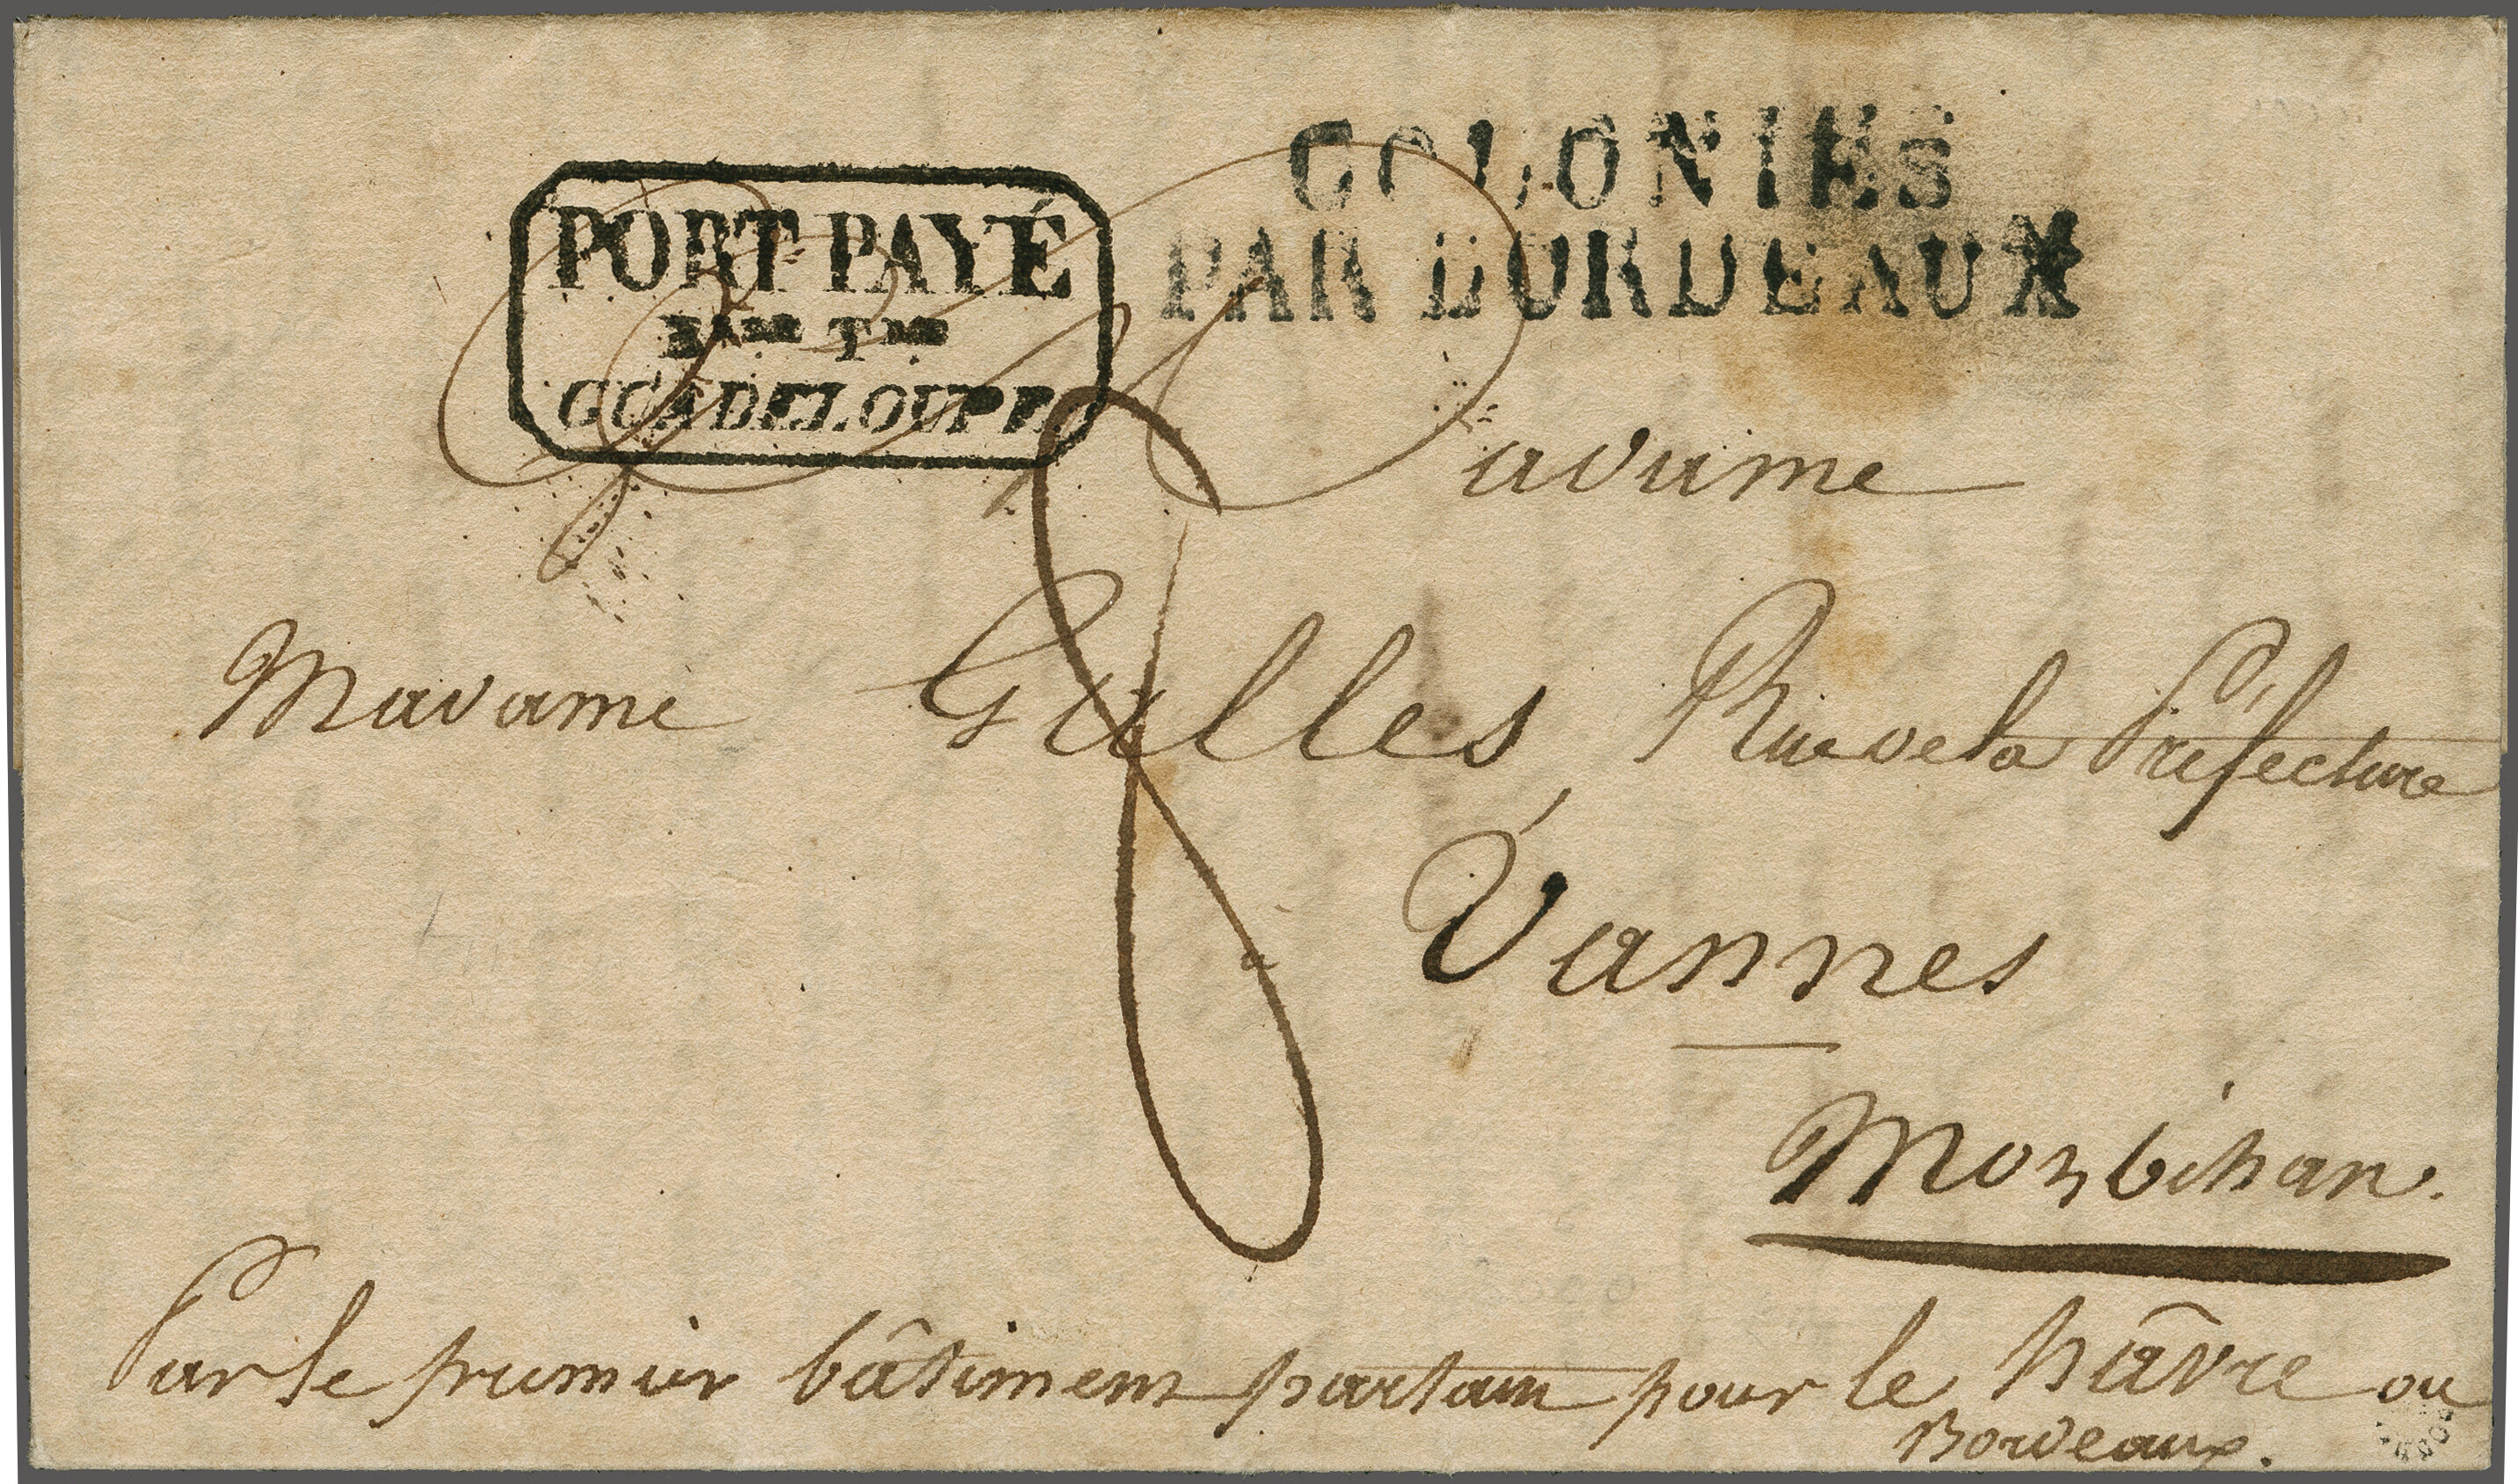 COLONIES
PAR BORDEAUX
PORT PAYÉ
Bsse Tre
GUADELOUPE.
8
Madame
Madame Galles, Rue de la Préfecture
à Vannes
Morbihan.
Par le premier bâtiment partant pour le hâvre ou
Bordeaux.